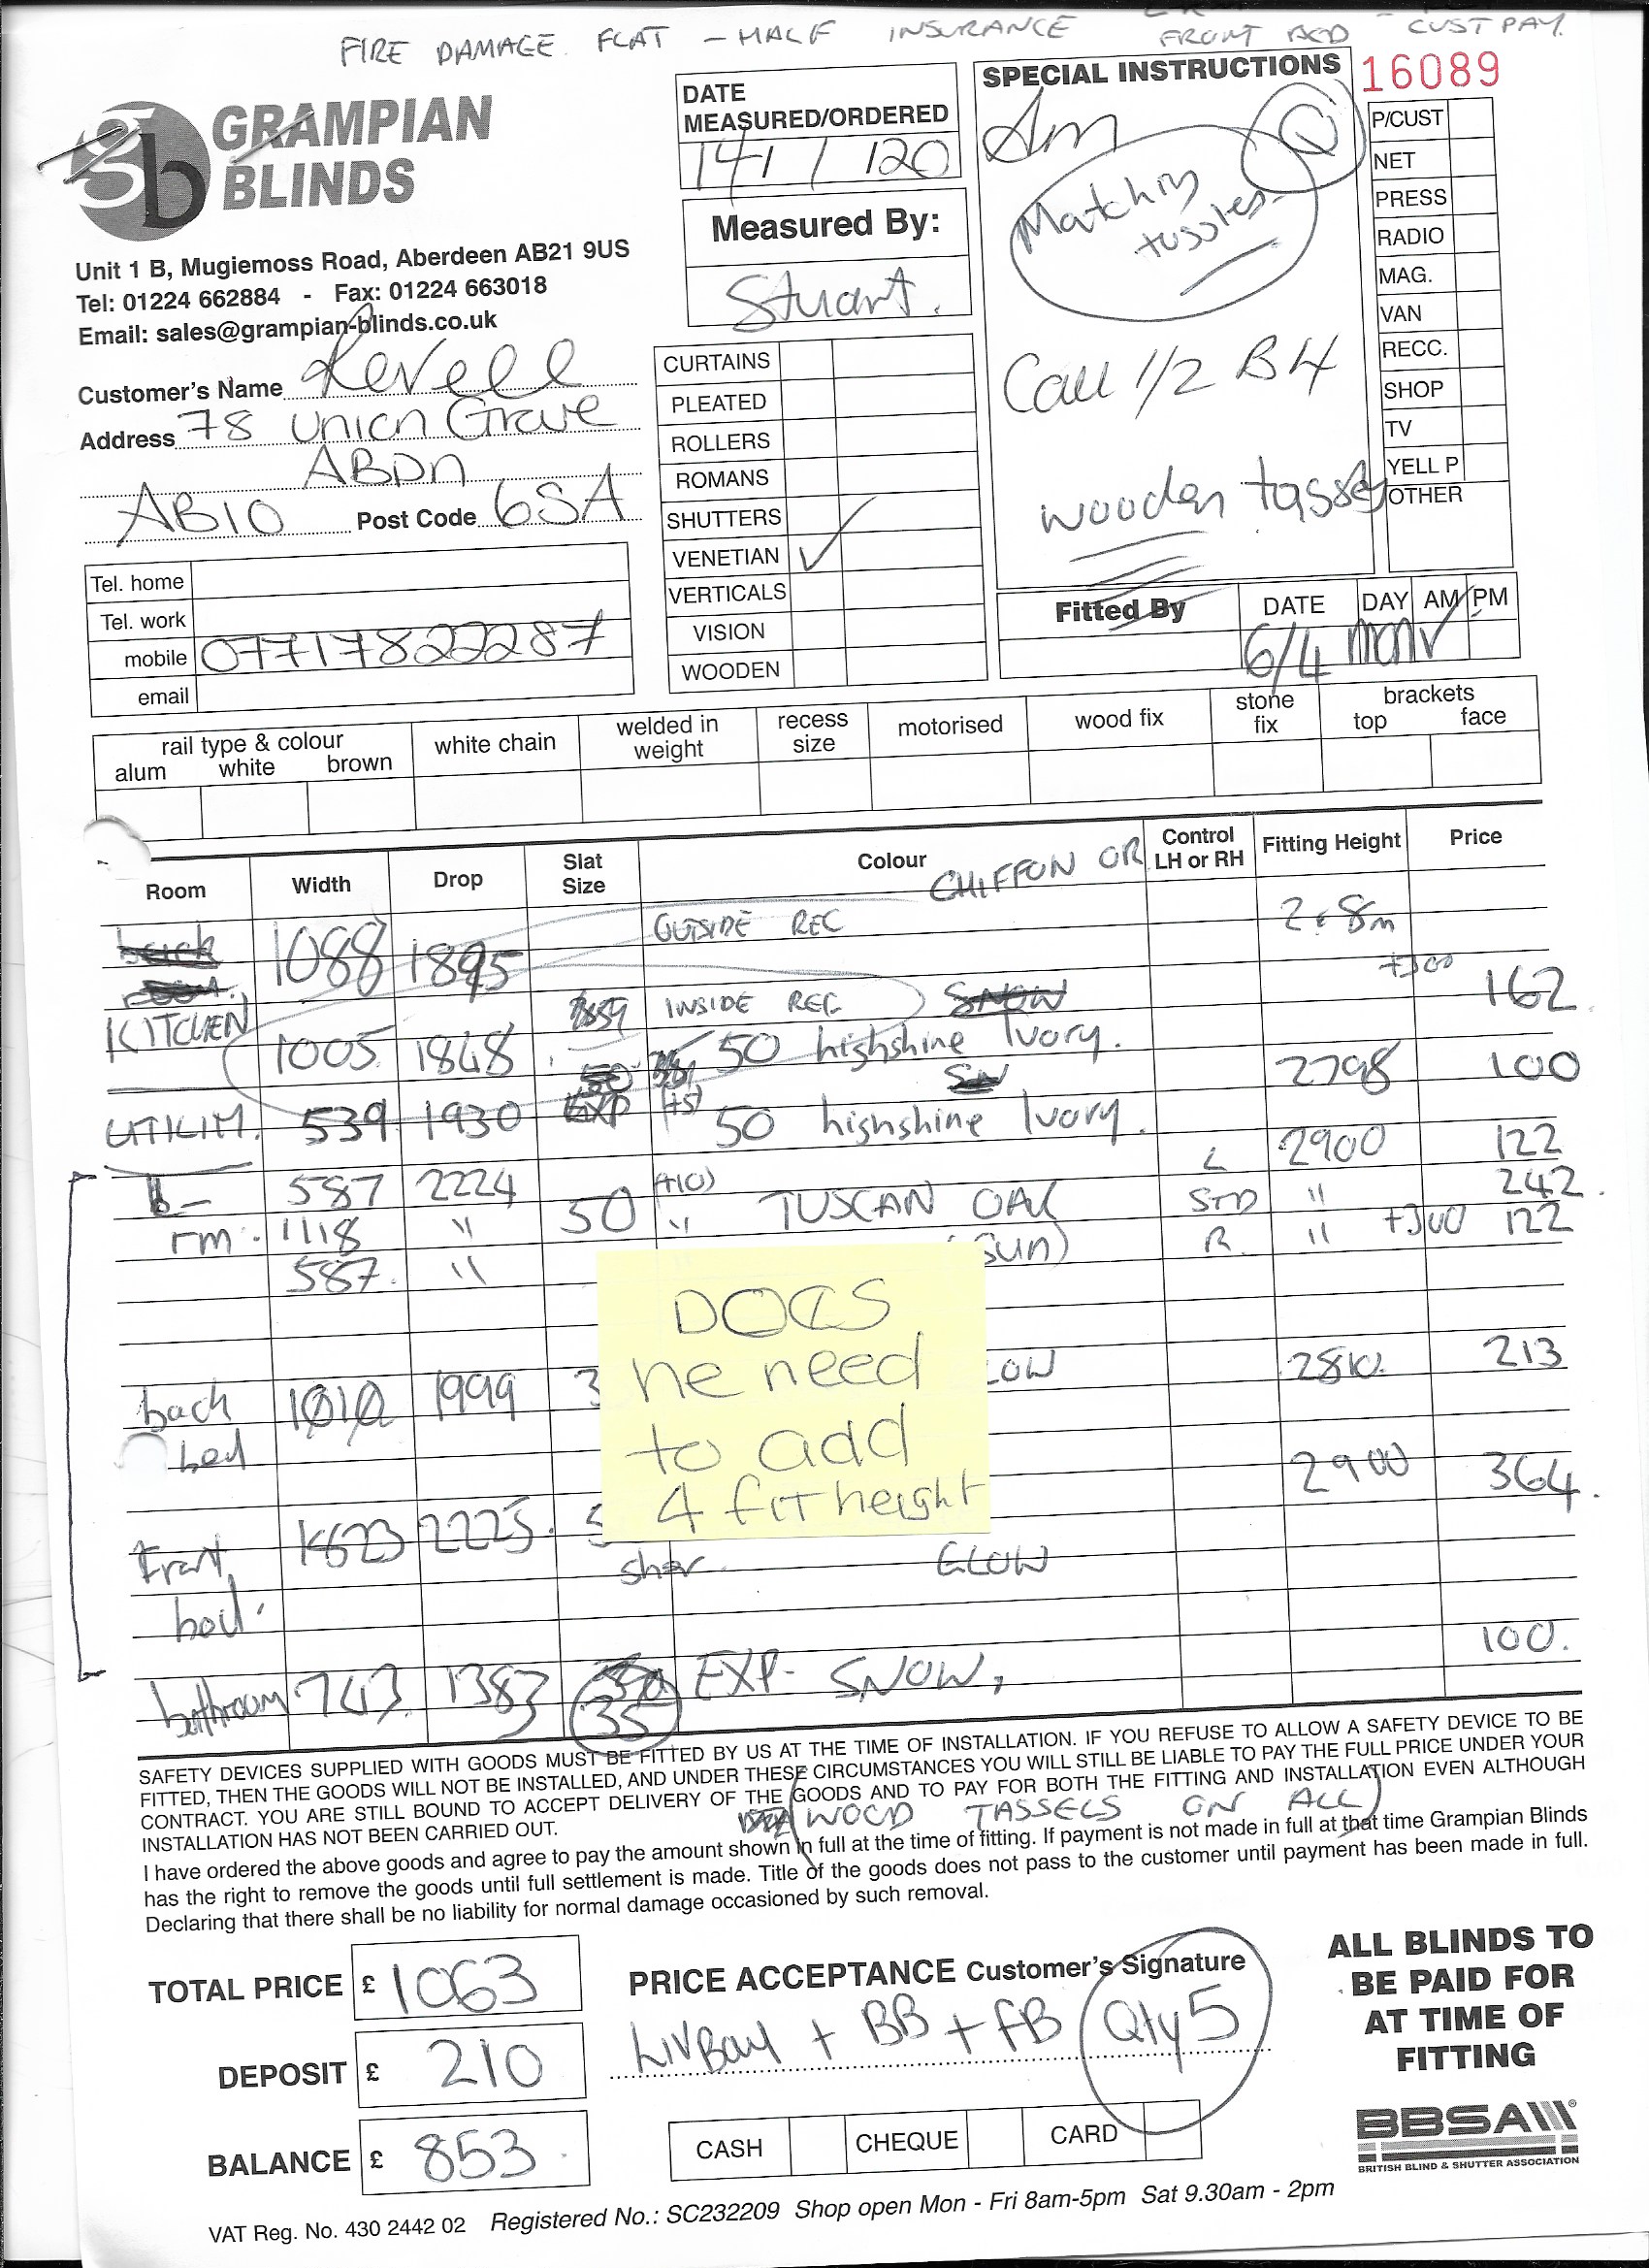 FIRE DAMAGE. FLAT - HALF INSURANCE FRONT - CUST PAY.
GRAMPIAN
BLINDS
Unit 1 B, Mugiemoss Road, Aberdeen AB21 9US
Tel: 01224 662884 - Fax: 01224 663018
Email: sales@grampian-blinds.co.uk
Customer's Name Revell
Address 78 Union Grove
ABDN
AB10 Post Code 6SA
Tel. home
Tel. work
mobile 07717822287
email
DATE
MEASURED/ORDERED
14/1/20
Measured By:
Stuart.
CURTAINS
PLEATED
ROLLERS
ROMANS
SHUTTERS
VENETIAN ✓
VERTICALS
VISION
WOODEN
SPECIAL INSTRUCTIONS
Matching
tassles
Call 1/2 B4
wooden tassels
16089
P/CUST
NET
PRESS
RADIO
MAG.
VAN
RECC.
SHOP
TV
YELL P
OTHER
Fitted By DATE DAY AM PM
6/4 mon ✓
rail type & colour
alum white brown
white chain
welded in
weight
recess
size
motorised
wood fix
stone
fix
brackets
top face
Room Width Drop Slat Size Colour Control LH or RH Fitting Height Price
CHIFFON OR
1088 1895 OUTSIDE REC 2.8m
+300 162
KITCHEN INSIDE REC SNOW
1005 1848 50 highshine Ivory. 2798 100
UTILITY. 539 1930 EXP +5 50 highshine Ivory.
b- 587 2224 (+10) L 2900 122
rm. 1118 " 50 " TUSCAN OAK STD " 242.
587. " (SUN) R " +300 122
back 1010 1999 3 LOW 2810. 213
bed
2900 364.
Front 1823 2225. 5
GLOW
bed.
100.
bathroom 743 1383 35 EXP- SNOW,
DOES
he need
to add
4 fit height
SAFETY DEVICES SUPPLIED WITH GOODS MUST BE FITTED BY US AT THE TIME OF INSTALLATION. IF YOU REFUSE TO ALLOW A SAFETY DEVICE TO BE
FITTED, THEN THE GOODS WILL NOT BE INSTALLED, AND UNDER THESE CIRCUMSTANCES YOU WILL STILL BE LIABLE TO PAY THE FULL PRICE UNDER YOUR
CONTRACT. YOU ARE STILL BOUND TO ACCEPT DELIVERY OF THE GOODS AND TO PAY FOR BOTH THE FITTING AND INSTALLATION EVEN ALTHOUGH
INSTALLATION HAS NOT BEEN CARRIED OUT.
(WOOD TASSELS ON ALL)
I have ordered the above goods and agree to pay the amount shown in full at the time of fitting. If payment is not made in full at that time Grampian Blinds
has the right to remove the goods until full settlement is made. Title of the goods does not pass to the customer until payment has been made in full.
Declaring that there shall be no liability for normal damage occasioned by such removal.
TOTAL PRICE £ 1063
DEPOSIT £ 210
BALANCE £ 853.
PRICE ACCEPTANCE Customer's Signature
LIVBay + BB + FB (Qty 5
CASH CHEQUE CARD
ALL BLINDS TO
BE PAID FOR
AT TIME OF
FITTING
BBSA
BRITISH BLIND & SHUTTER ASSOCIATION
VAT Reg. No. 430 2442 02 Registered No.: SC232209 Shop open Mon - Fri 8am-5pm Sat 9.30am - 2pm